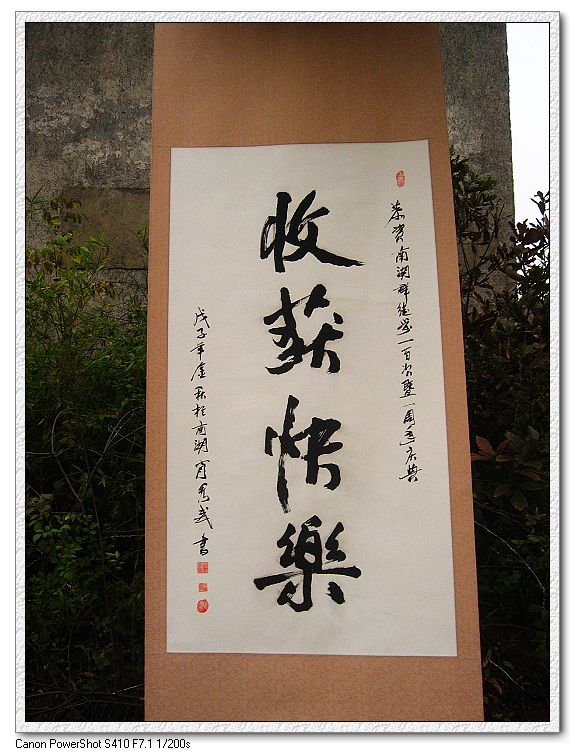 恭贺南湖群一百次暨一周年庆典
收获快樂
戊子年金秋於南湖肖武書
Canon PowerShot S410 F7.1 1/200s